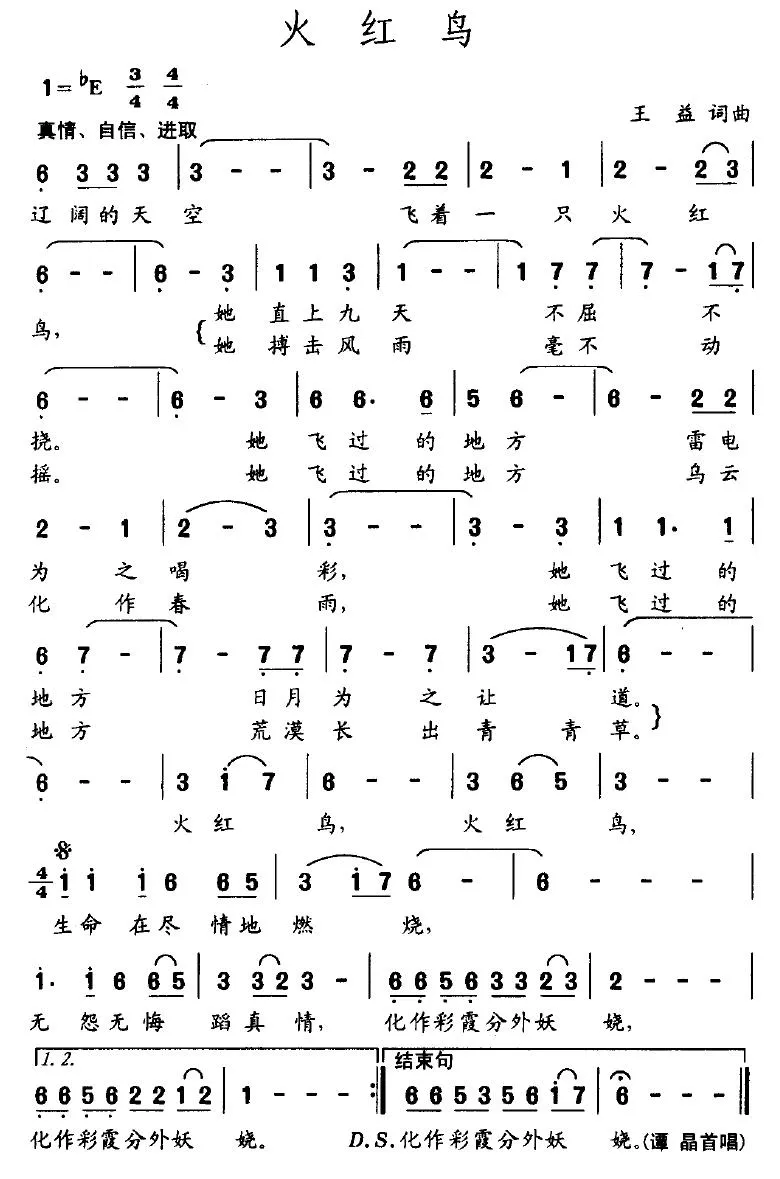 火 红 鸟
1=♭E 3/4 4/4
王 益 词曲
真情、自信、进取
6 3 3 3 3 | 3 - - | 3 - 2 2 | 2 - 1 | 2 - 2 3 |
辽 阔 的 天 空 飞 着 一 只 火 红
6 - - | 6 - 3 | 1 1 3 | 1 - - | 1 7 7 | 7 - 1 7 |
鸟, { 她 直 上 九 天 不 屈 不
她 搏 击 风 雨 毫 不 动
6 - - | 6 - 3 | 6 6· 6 | 5 6 - | 6 - 2 2 |
挠。 她 飞 过 的 地 方 雷 电
摇。 她 飞 过 的 地 方 乌 云
2 - 1 | 2 - 3 | 3 - - | 3 - 3 | 1 1· 1 |
为 之 喝 彩, 她 飞 过 的
化 作 春 雨, 她 飞 过 的
6 7 - | 7 - 7 7 | 7 - 7 | 3 - 1 7 | 6 - - |
地 方 日 月 为 之 让 道。
地 方 荒 漠 长 出 青 青 草。 }
6 - - | 3 i 7 | 6 - - | 3 6 5 | 3 - - |
火 红 鸟, 火 红 鸟,
4/4 i i i 6 6 5 | 3 i 7 6 - | 6 - - - |
生 命 在 尽 情 地 燃 烧,
i· i 6 6 5 | 3 3 2 3 - | 6 6 5 6 3 3 2 3 | 2 - - - |
无 怨 无 悔 蹈 真 情, 化 作 彩 霞 分 外 妖 娆,
1. 2. 结束句
6 6 5 6 2 2 1 2 | 1 - - - :‖ 6 6 5 3 5 6 i 7 | 6 - - - ‖
化 作 彩 霞 分 外 妖 娆。 D.S. 化 作 彩 霞 分 外 妖 娆。(谭 晶首唱)